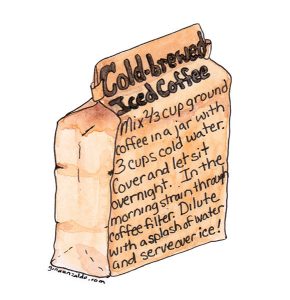 Cold-brewed
Iced Coffee
Mix 2/3 cup ground
coffee in a jar with
3 cups cold water.
Cover and let sit
overnight. In the
morning strain through
coffee filter. Dilute
with a splash of water
and serve over ice!